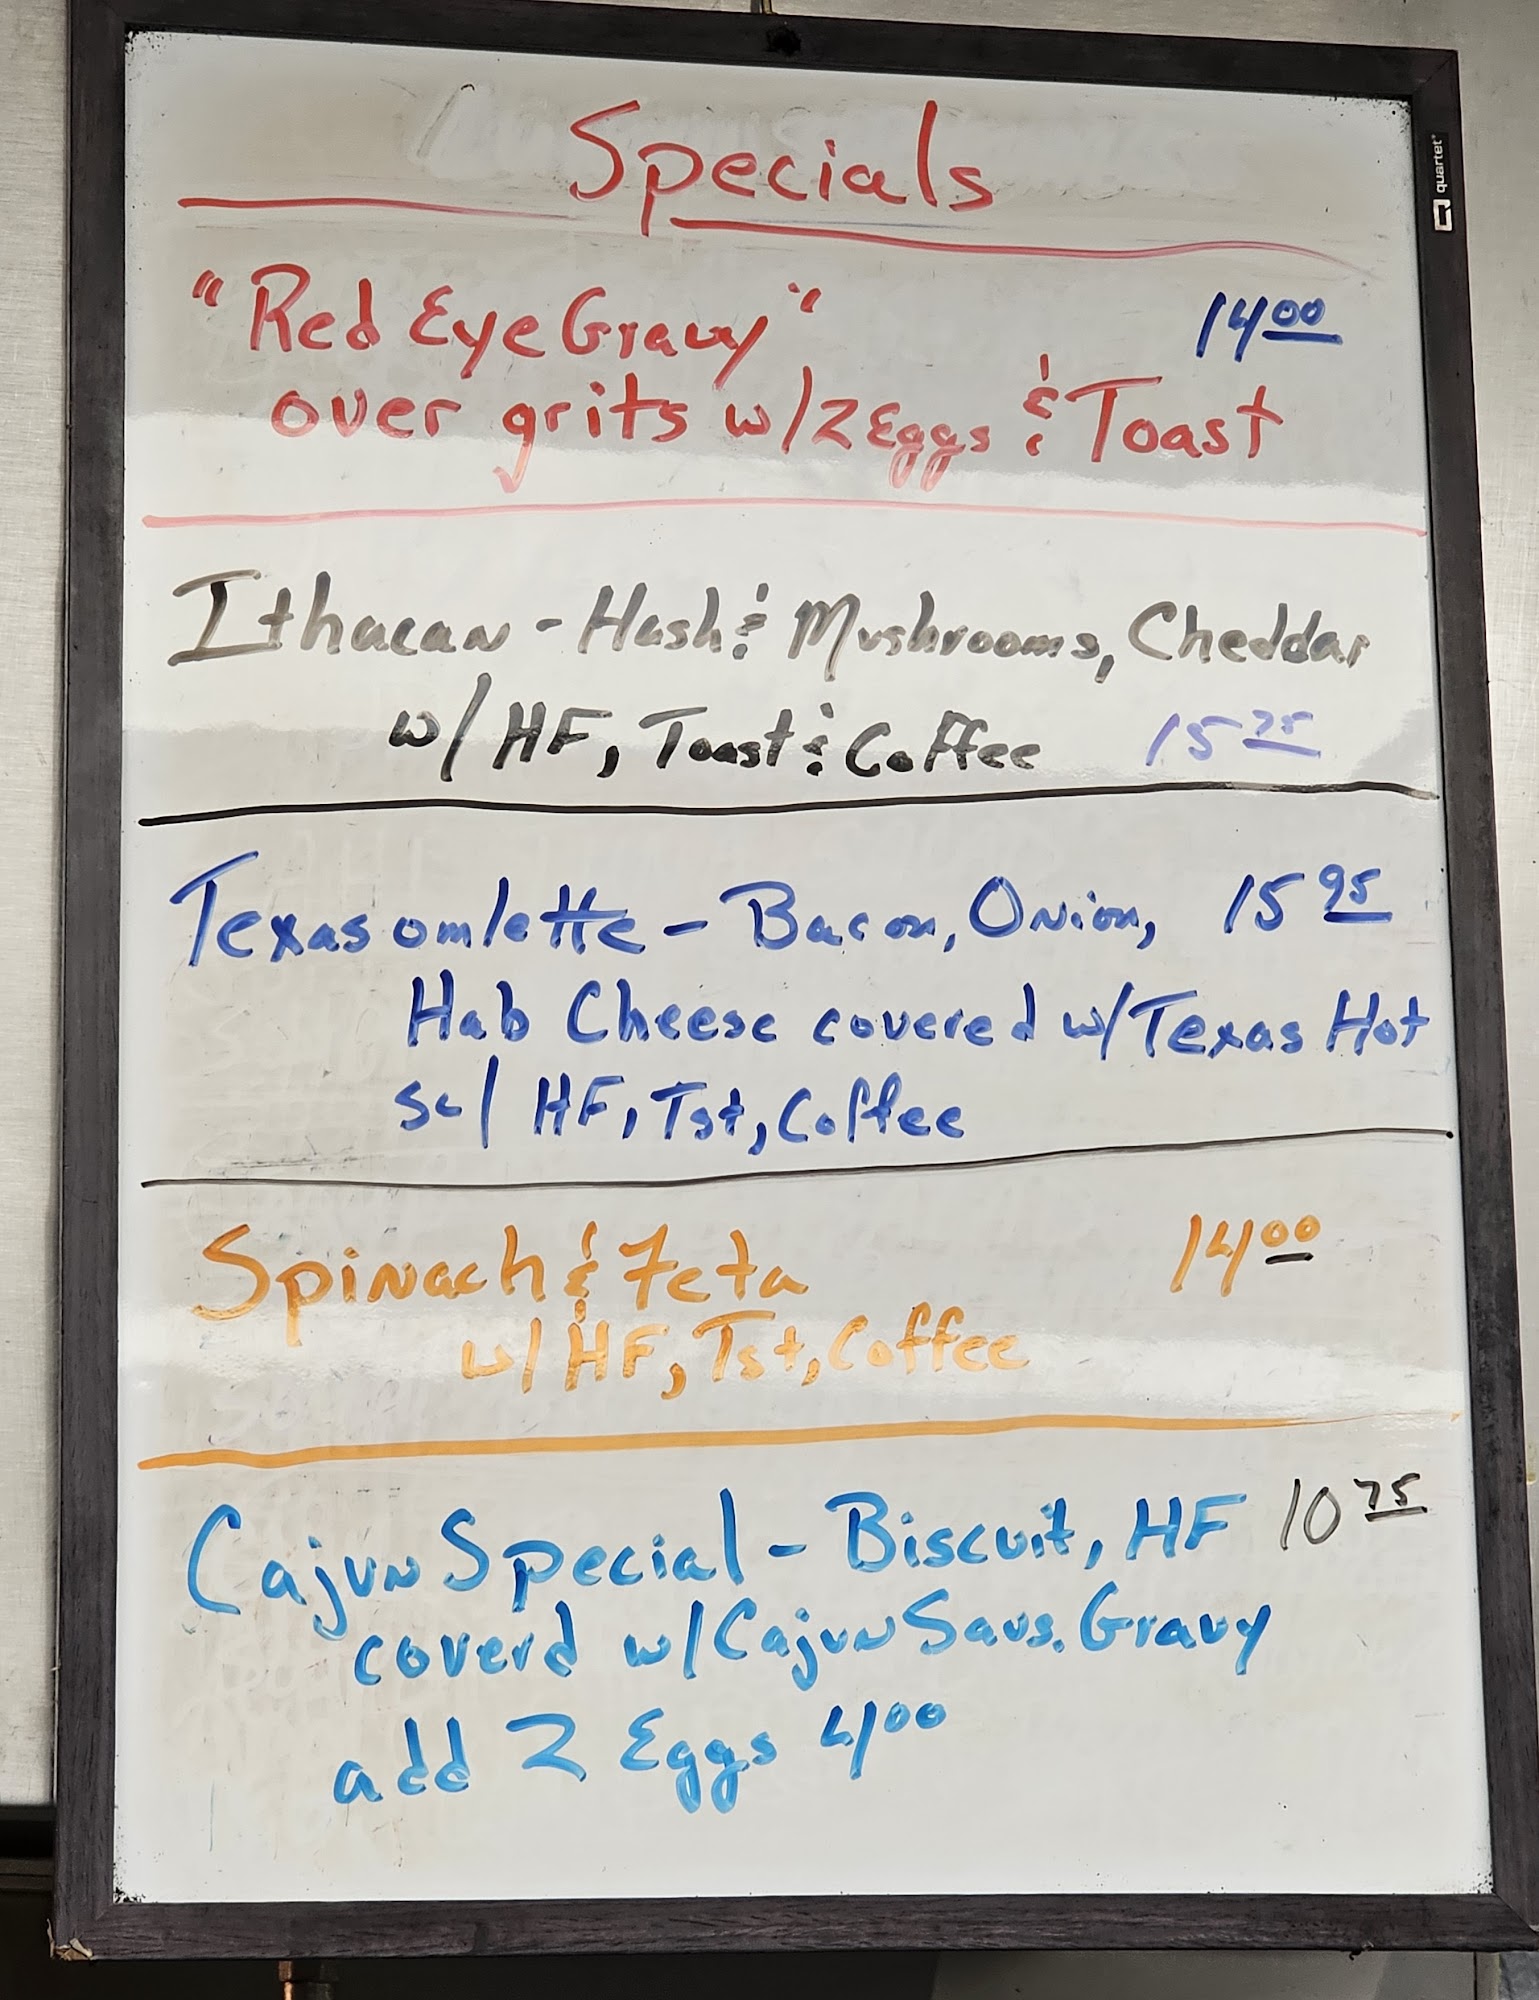 Specials
"Red Eye Gravy" 1400
over grits w/2 Eggs & Toast
Ithacan - Hash & Mushrooms, Cheddar
w/ HF, Toast & Coffee 15 75
Texas omlette - Bacon, Onion, 15 95
Hab Cheese covered w/Texas Hot
sc/ HF, Tst, Coffee
Spinach & Feta 14 00
w/ HF, Tst, Coffee
Cajun Special - Biscuit, HF 10 75
coverd w/Cajun Saus. Gravy
add 2 Eggs 4 00
quartet